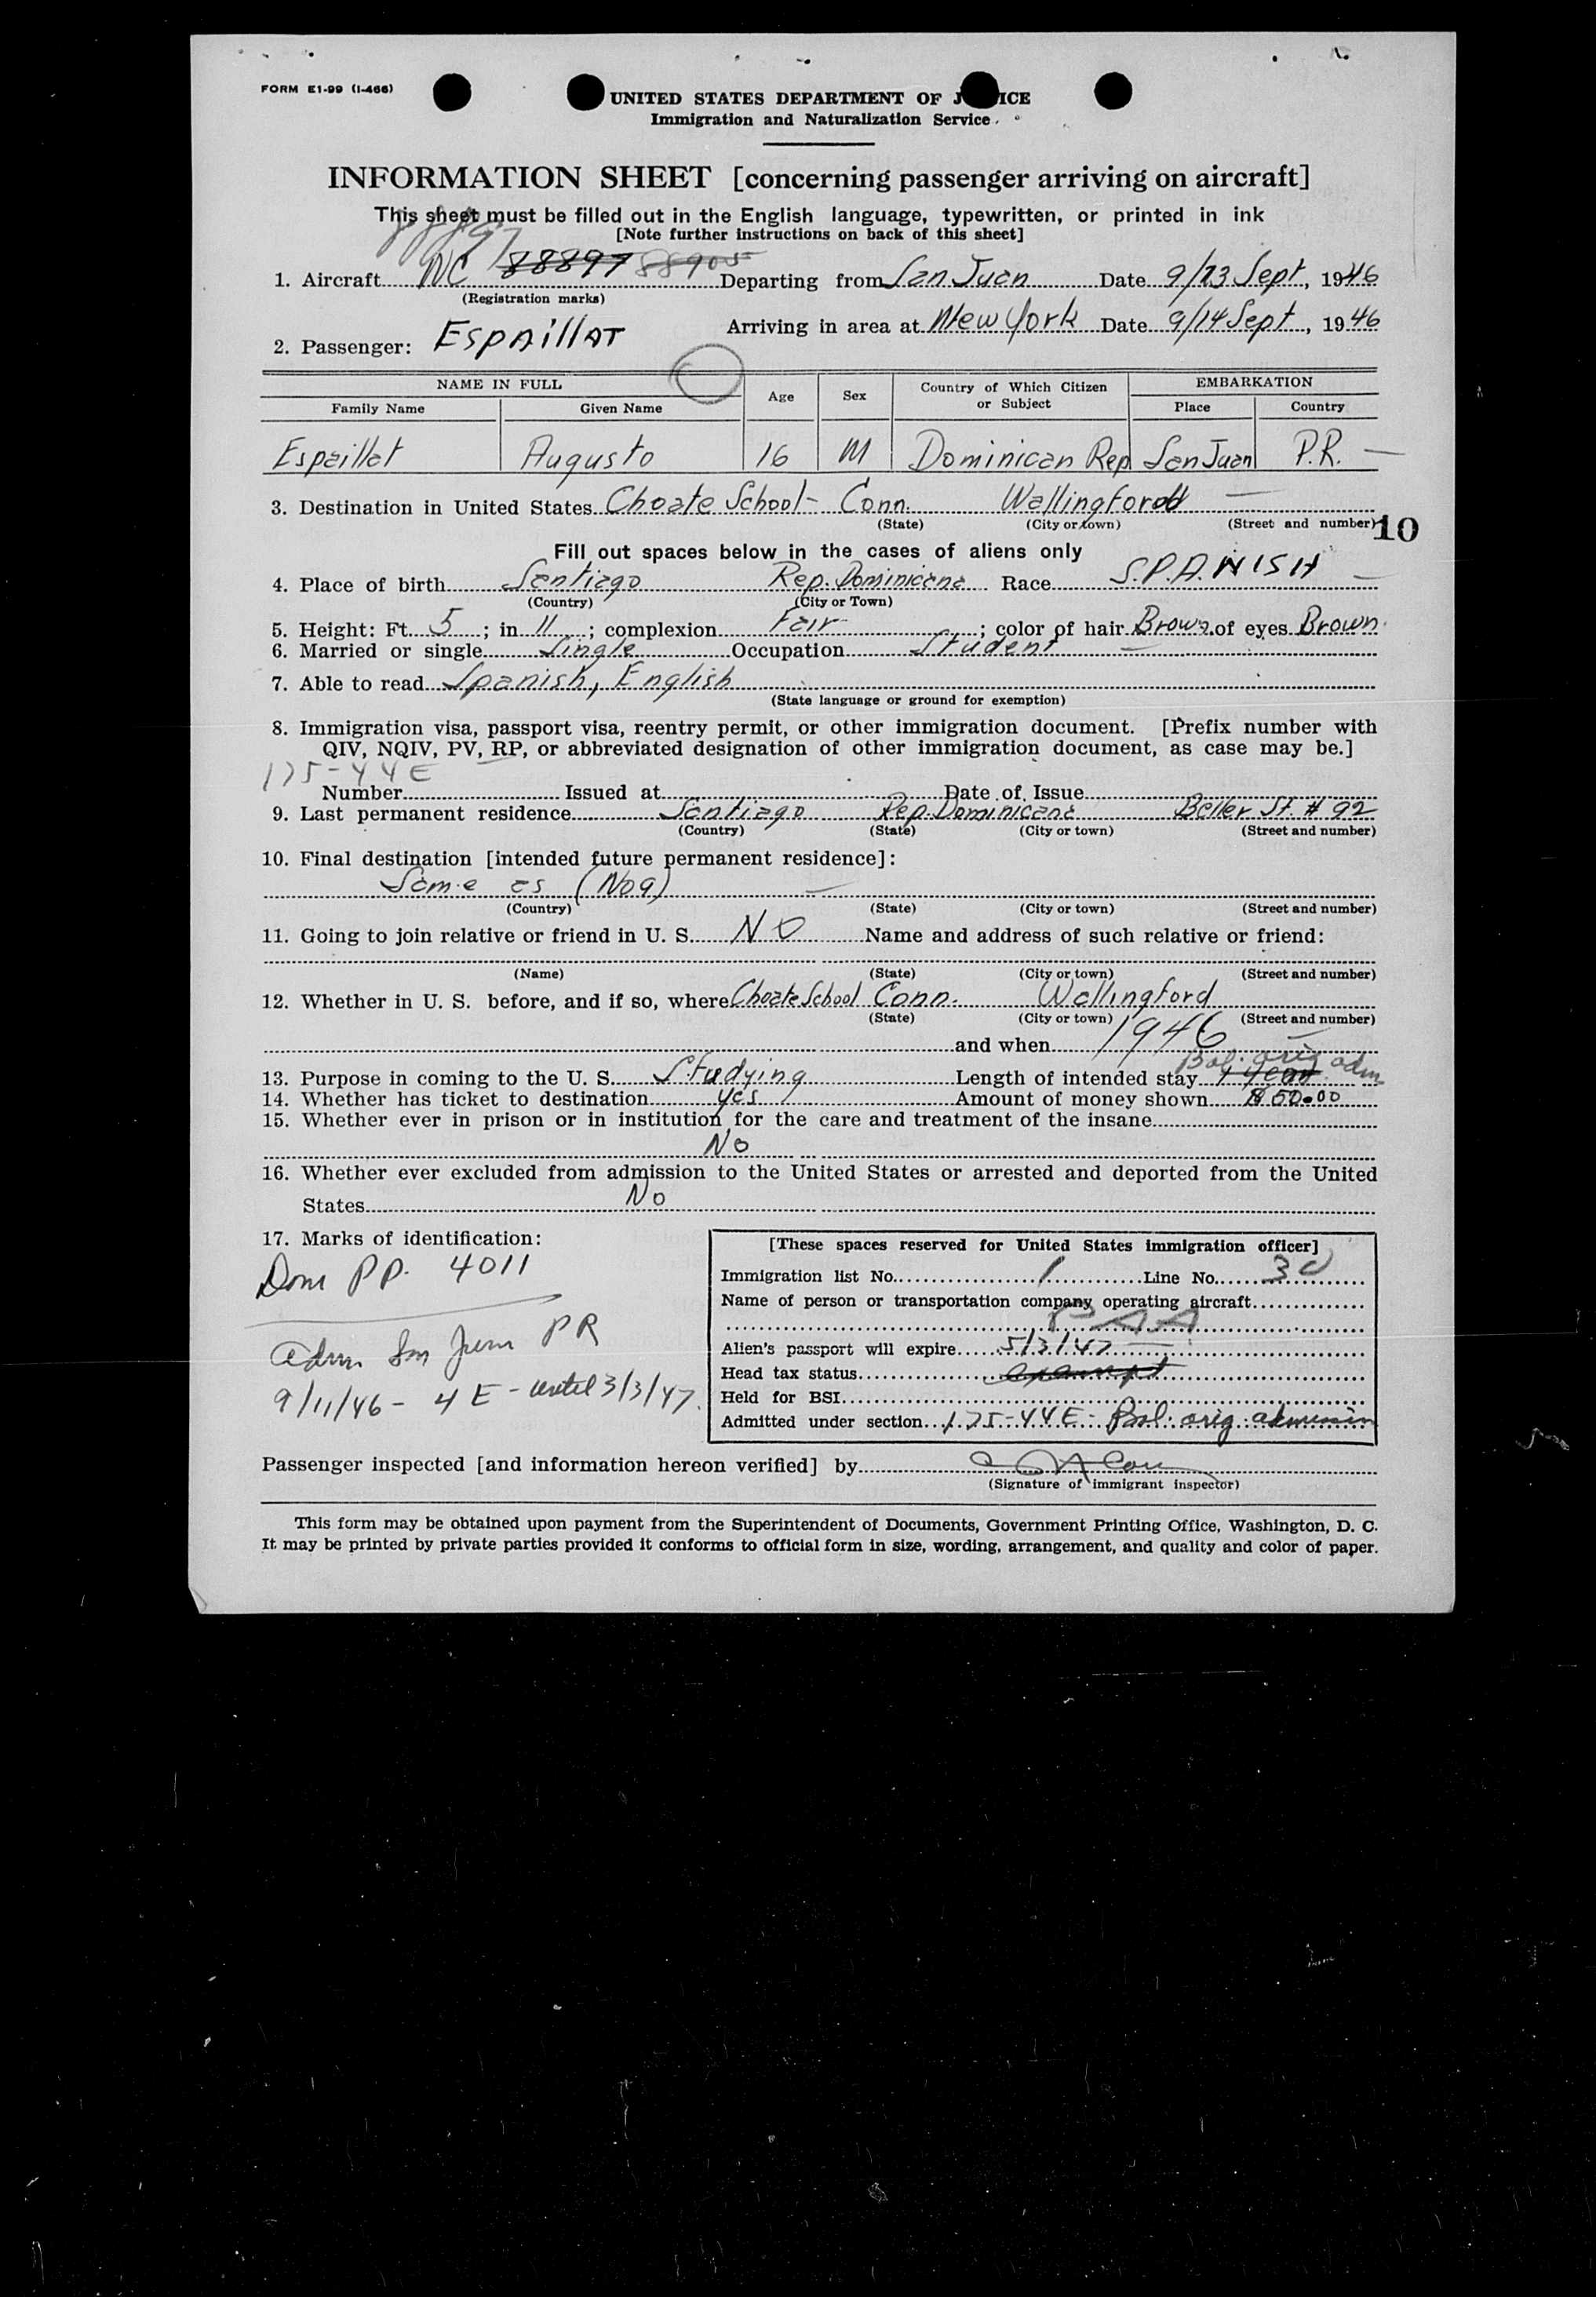 FORM E1-99 (I-466)
UNITED STATES DEPARTMENT OF J ICE
Immigration and Naturalization Service
INFORMATION SHEET [concerning passenger arriving on aircraft]
This sheet must be filled out in the English language, typewritten, or printed in ink
[Note further instructions on back of this sheet]
88897
1. Aircraft NC 88897 88905 Departing from San Juan Date 9/13 Sept, 1946
(Registration marks)
Arriving in area at New York Date 9/14 Sept, 1946
2. Passenger: ESPAillAT
NAME IN FULL Age Sex Country of Which Citizen or Subject EMBARKATION
Family Name Given Name Place Country
Espaillat Augusto 16 M Dominican Rep San Juan P.R. —
3. Destination in United States Choate School - Conn. Wallingford —
(State) (City or town) (Street and number)
10
Fill out spaces below in the cases of aliens only
4. Place of birth Santiago Rep. Dominicana Race SPANISH
(Country) (City or Town)
5. Height: Ft. 5; in 11; complexion Fair; color of hair Brown of eyes Brown
6. Married or single Single Occupation Student
7. Able to read Spanish, English
(State language or ground for exemption)
8. Immigration visa, passport visa, reentry permit, or other immigration document. [Prefix number with
QIV, NQIV, PV, RP, or abbreviated designation of other immigration document, as case may be.]
175-44E
Number Issued at Date of Issue
9. Last permanent residence Santiago Rep. Dominicana Beller St. # 92
(Country) (State) (City or town) (Street and number)
10. Final destination [intended future permanent residece]:
Same as (No9)
(Country) (State) (City or town) (Street and number)
11. Going to join relative or friend in U. S. NO Name and address of such relative or friend:
(Name) (State) (City or town) (Street and number)
12. Whether in U. S. before, and if so, where Choate School Conn. Wallingford
(State) (City or town) (Street and number)
and when 1946
Bal. orig adm
13. Purpose in coming to the U. S. Studying Length of intended stay 1 year
14. Whether has ticket to destination yes Amount of money shown $50.00
15. Whether ever in prison or in institution for the care and treatment of the insane
No
16. Whether ever excluded from admission to the United States or arrested and deported from the United
States No
17. Marks of identification:
Dom PP. 4011
Adm San Juan PR
9/11/46 - 4E - until 3/3/47.
[These spaces reserved for United States immigration officer]
Immigration list No. 1 Line No. 30
Name of person or transportation company operating aircraft
PAA
Alien's passport will expire 5/3/47
Head tax status exempt
Held for BSI
Admitted under section 175-44E - Bal. orig. admission
Passenger inspected [and information hereon verified] by
(Signature of immigrant inspector)
This form may be obtained upon payment from the Superintendent of Documents, Government Printing Office, Washington, D. C.
It may be printed by private parties provided it conforms to official form in size, wording, arrangement, and quality and color of paper.